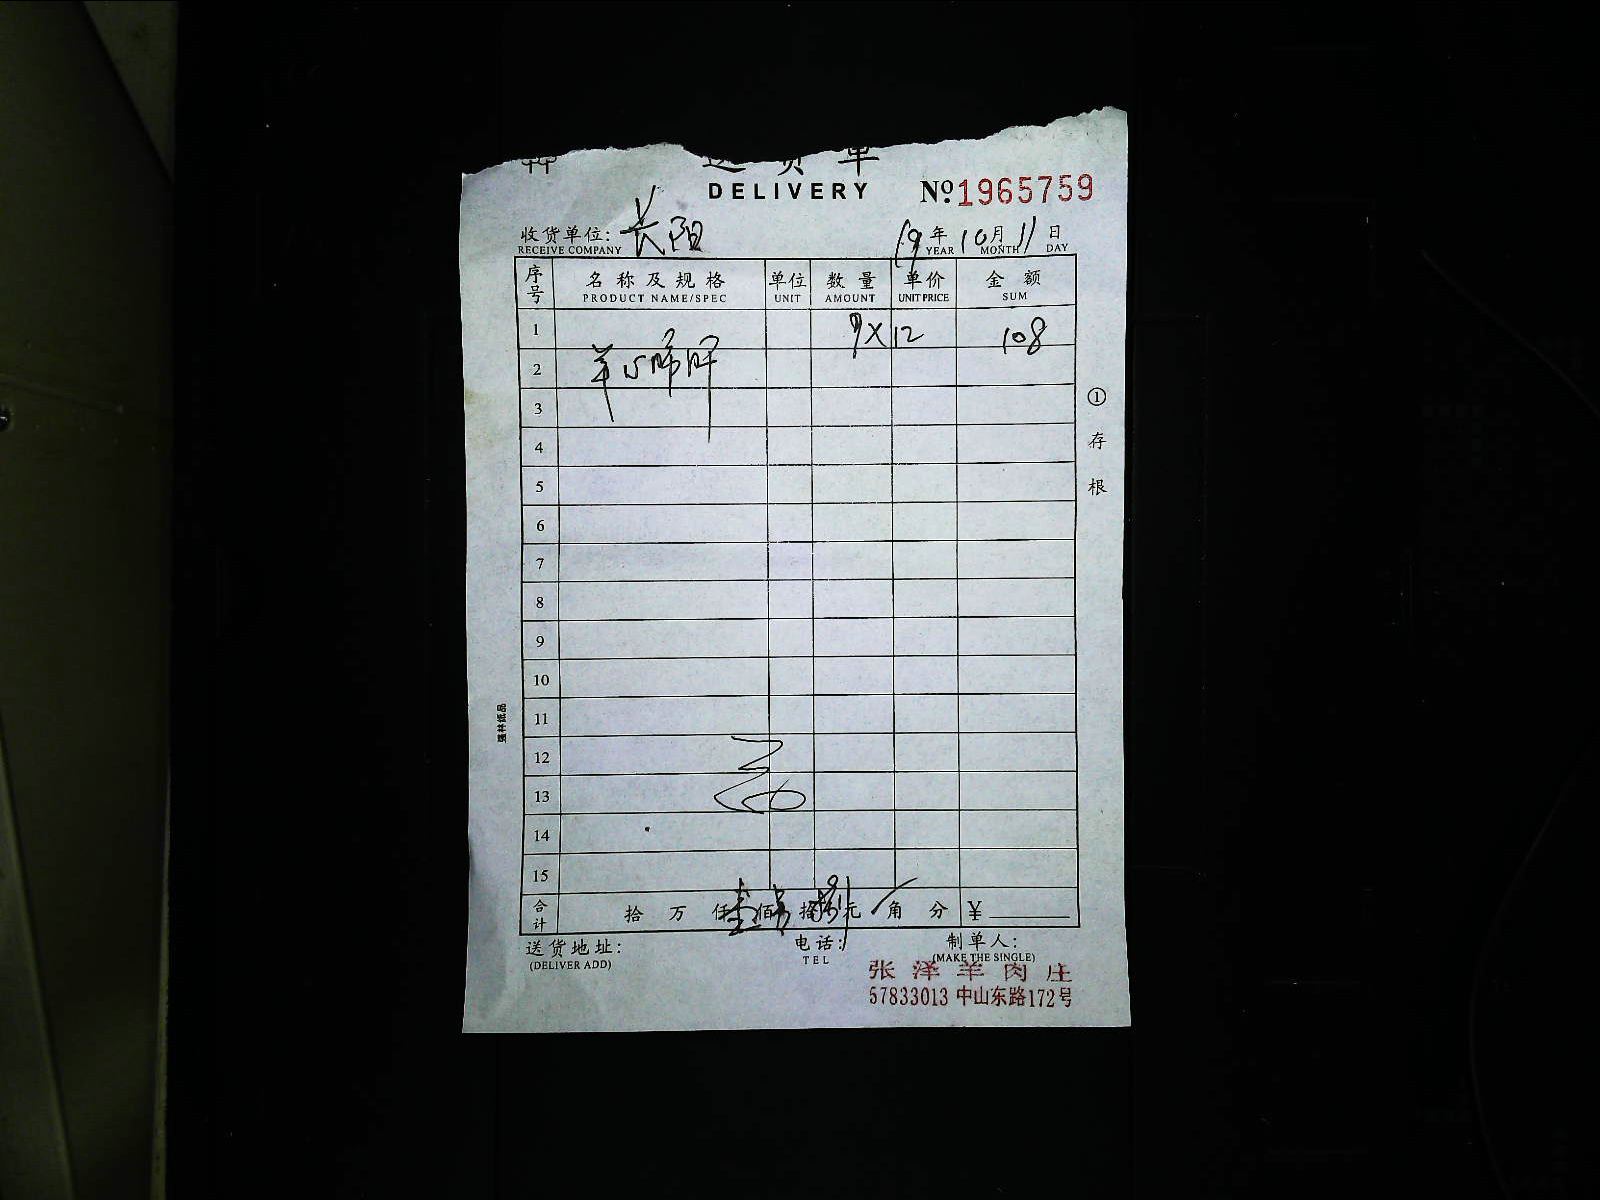 送货单
DELIVERY
№ 1965759
收货单位: 长阳 19年10月11日
RECEIVE COMPANY YEAR MONTH DAY
序号 名称及规格 单位 数量 单价 金额
PRODUCT NAME/SPEC UNIT AMOUNT UNIT PRICE SUM
1 9×12 108
2 羊心肺肝
3
4
5
6
7
8
9
10
11
12
13
14
15
合计 拾 万 仟壹佰零拾捌元 角 分 ¥
送货地址: 电话: 制单人:
(DELIVER ADD) TEL (MAKE THE SINGLE)
张泽羊肉庄
57833013 中山东路172号
①存根
强林纸品